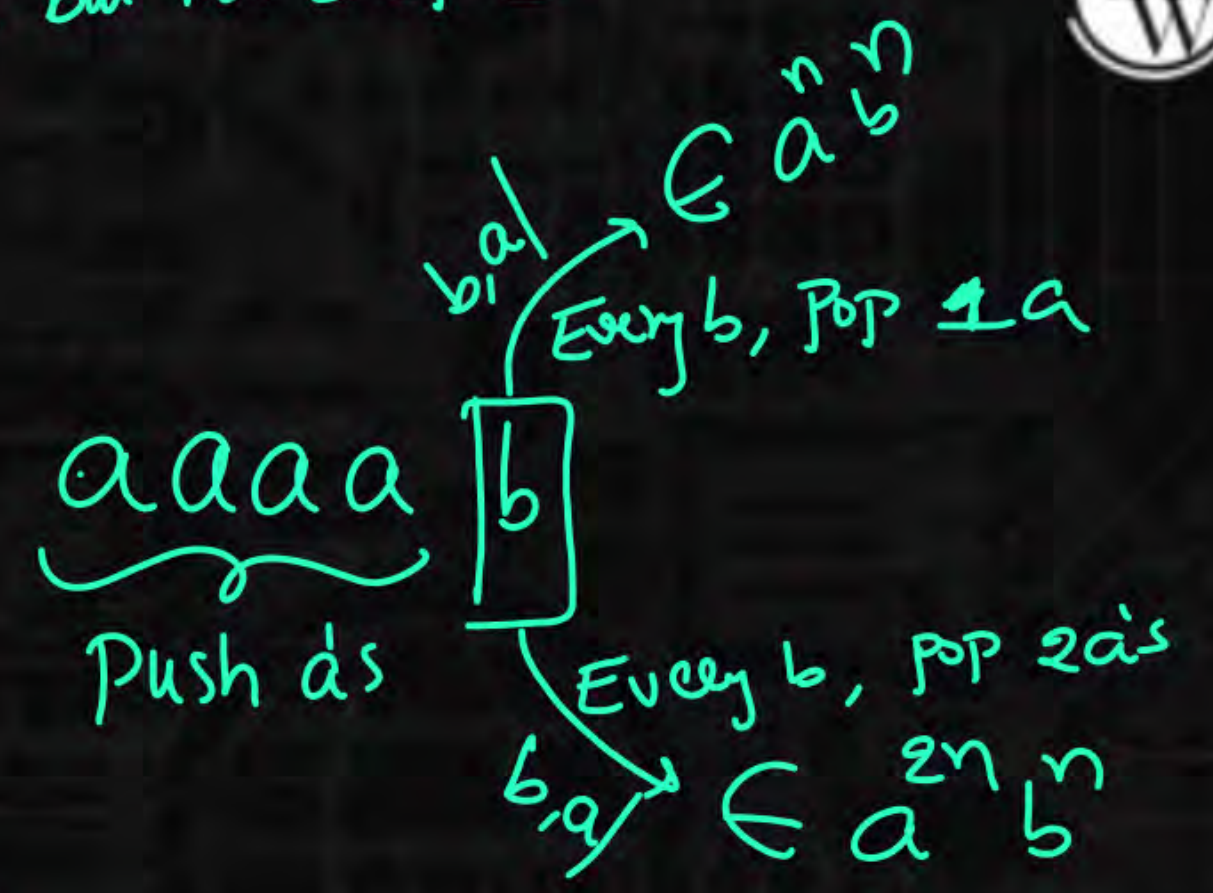 ∈ aⁿ bⁿ
b,a/
Every b, Pop 1 a
a a a a b
Push a's
Every b, pop 2a's
b,a/
∈ a²ⁿ bⁿ
W